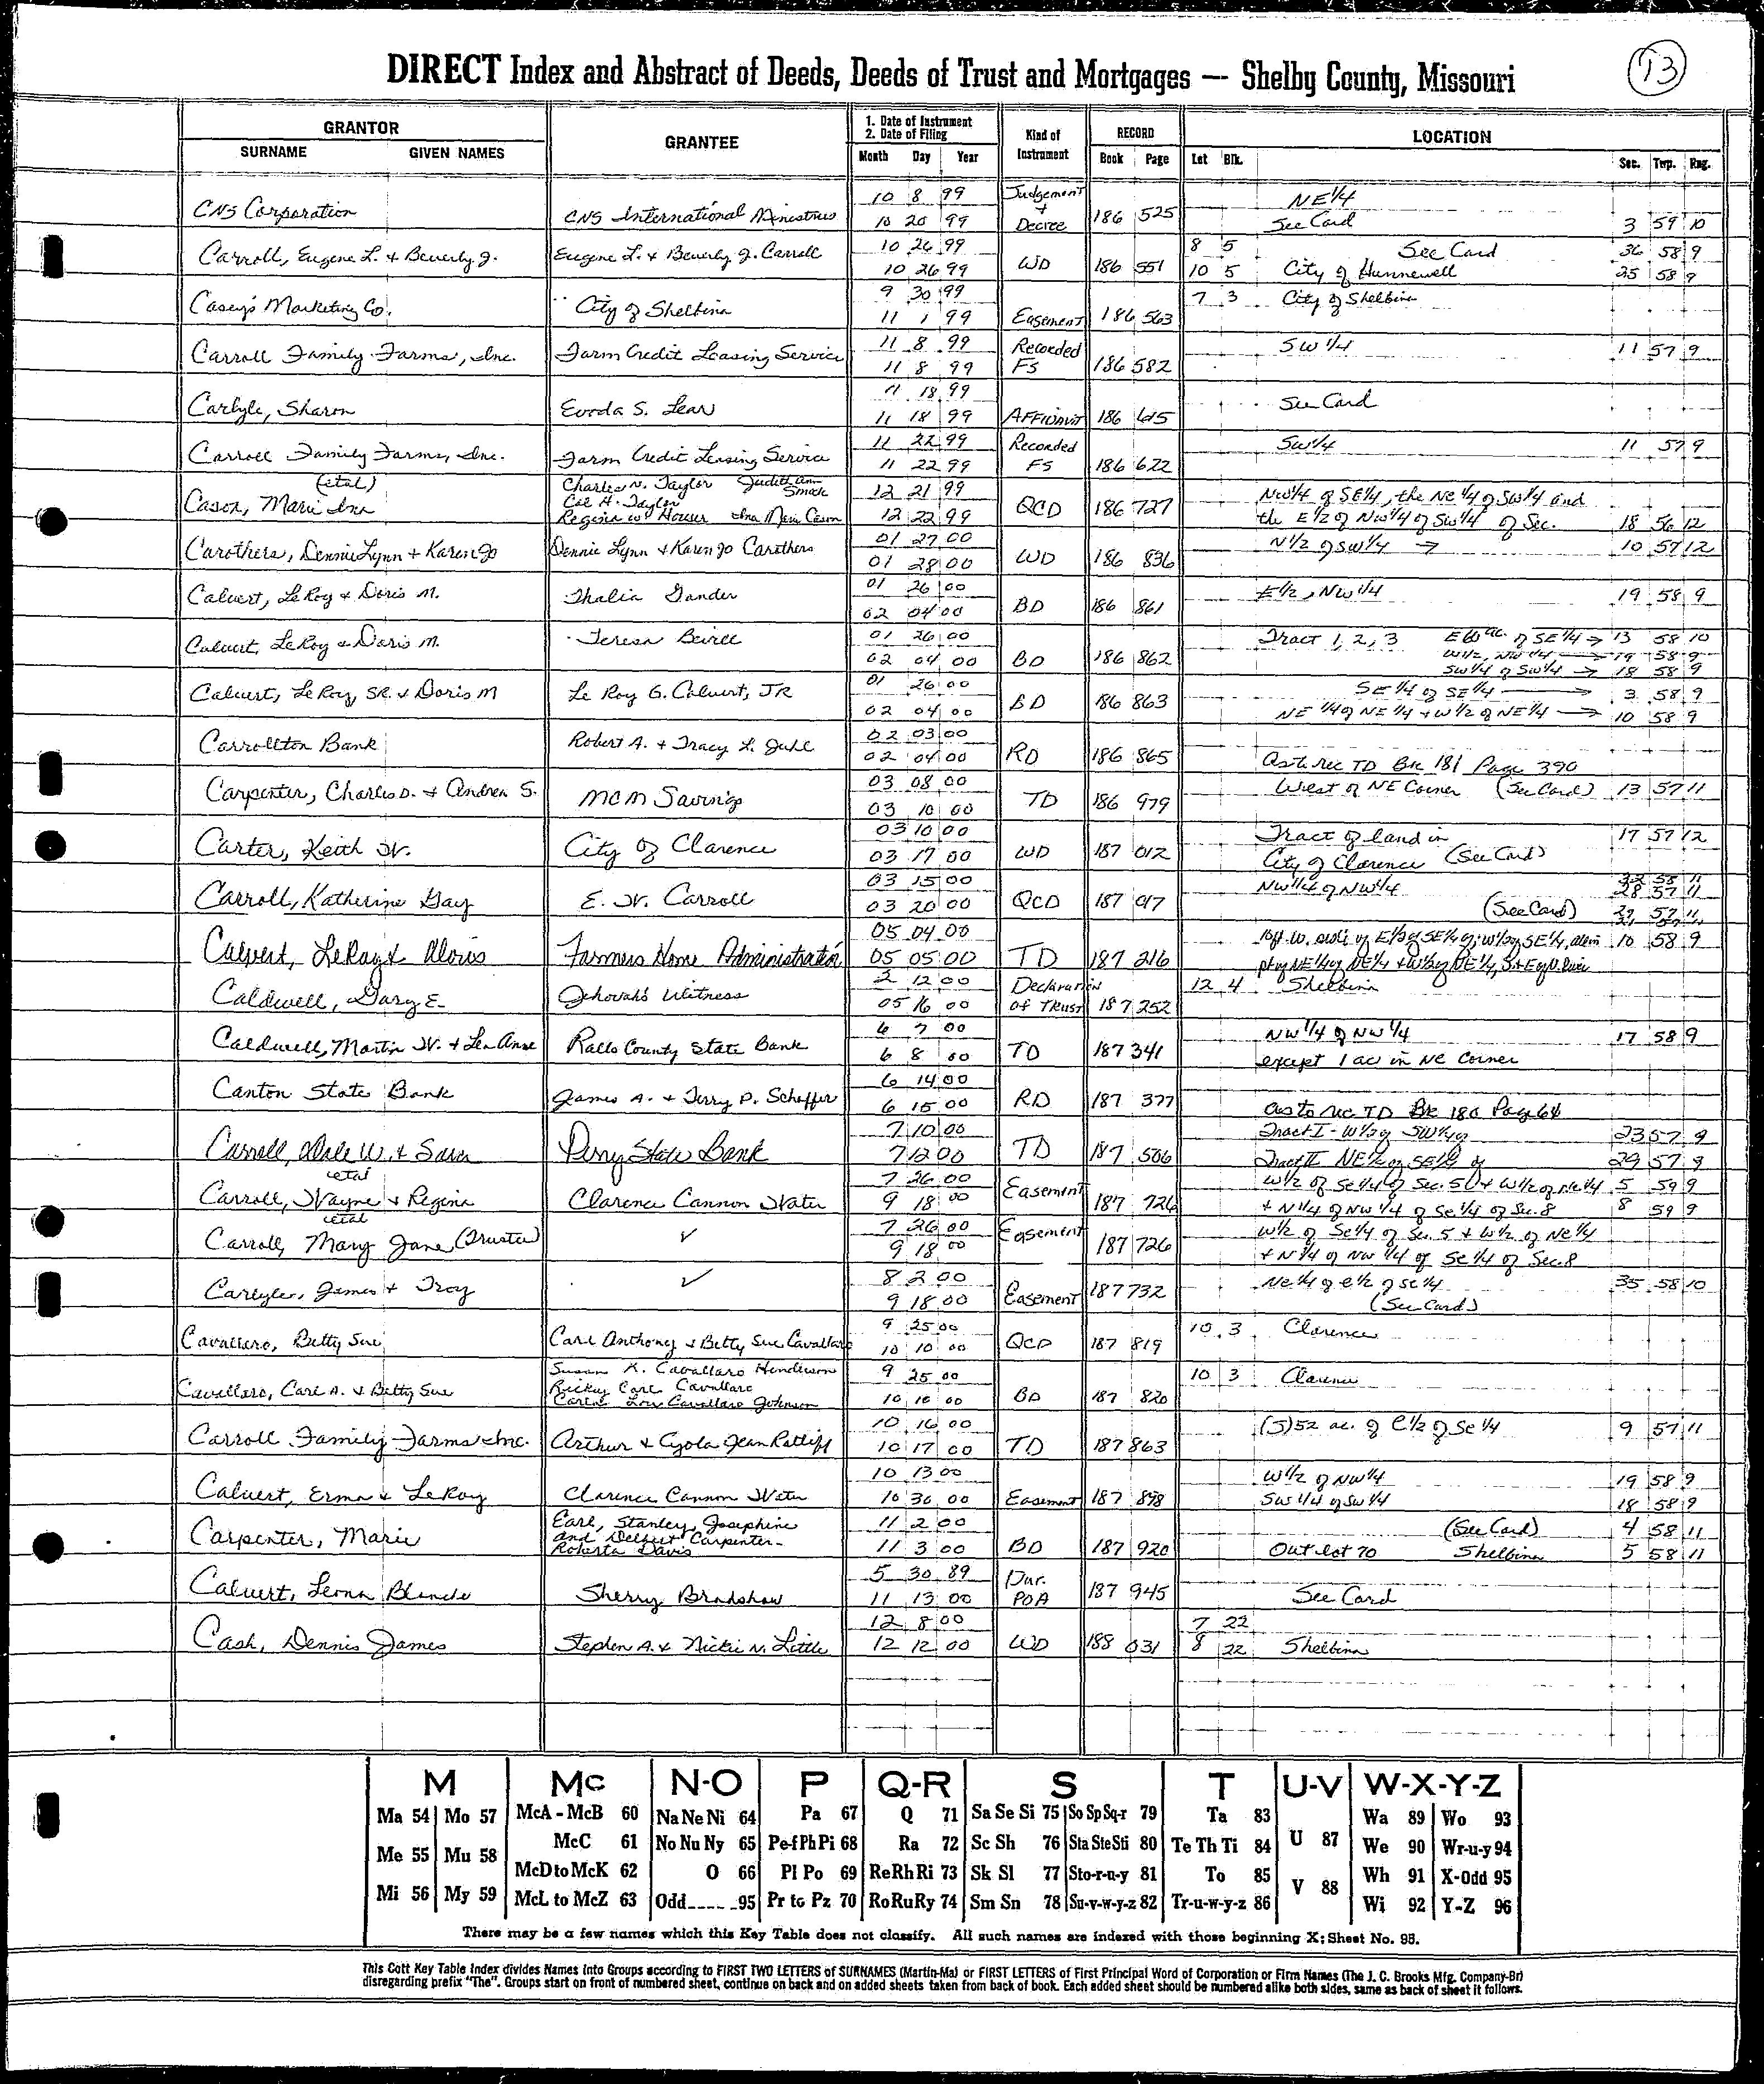 13
DIRECT Index and Abstract of Deeds, Deeds of Trust and Mortgages — Shelby County, Missouri
GRANTOR GRANTEE 1. Date of Instrument 2. Date of Filing Kind of Instrument RECORD LOCATION
SURNAME GIVEN NAMES Month Day Year Book Page Lot Blk. Sec. Twp. Rng.
CNS Corporation CNS International Ministries 10 8 99 10 20 99 Judgement + Decree 186 525 NE 1/4 See Card 3 59 10
Carroll, Eugene L. + Beverly J. Eugene L. + Beverly J. Carroll 10 26 99 10 26 99 WD 186 551 8 5 See Card 36 58 9
10 5 City of Hunnewell 25 58 9
Casey's Marketing Co. City of Shelbina 9 30 99 11 1 99 Easement 186 563 7 3 City of Shelbina
Carroll Family Farms, Inc. Farm Credit Leasing Service 11 8 99 11 8 99 Recorded FS 186 582 SW 1/4 11 57 9
Carlyle, Sharon Evoda S. Lear 11 18 99 11 18 99 Affidavit 186 615 See Card
Carroll Family Farms, Inc. Farm Credit Leasing Service 11 22 99 11 22 99 Recorded FS 186 622 SW 1/4 11 57 9
(etal)
Cason, Marie Ina Charles N. Taylor Judith Ann Smock
Cal H. Taylor
Regina W. Houser Ina Marie Cason 12 21 99 12 22 99 QCD 186 727 NW 1/4 of SE 1/4, the NE 1/4 of SW 1/4 and
the E 1/2 of NW 1/4 of SW 1/4 of Sec. 18 56 12
Carothers, Dennie Lynn + Karen Jo Dennie Lynn + Karen Jo Carothers 01 27 00 01 28 00 WD 186 836 N 1/2 of SW 1/4 → 10 57 12
Calvert, LeRoy + Doris M. Thalia Gander 01 26 00 02 04 00 BD 186 861 E 1/2, NW 1/4 19 58 9
Calvert, LeRoy + Doris M. Teresa 01 26 00 02 04 00 BD 186 862 Tract 1, 2, 3 of SE 1/4 → 13 58 10
W 1/2, NW 1/4 → 19 58 9
SW 1/4 of SW 1/4 → 18 58 9
Calvert, LeRoy, SR. + Doris M LeRoy G. Calvert, JR 01 26 00 02 04 00 BD 186 863 SE 1/4 of SE 1/4 → 3 58 9
NE 1/4 of NE 1/4 + W 1/2 of NE 1/4 → 10 58 9
Carrollton Bank Robert A. + Tracy L. Juhl 02 03 00 02 04 00 RD 186 865 As to rec TD Bk 181 Page 390
Carpenter, Charles D. + Andrea S. MCM Savings 03 08 00 03 10 00 TD 186 979 West of NE Corner (See Card) 13 57 11
Carter, Keith W. City of Clarence 03 10 00 03 17 00 WD 187 012 Tract of land in 17 57 12
City of Clarence (See Card)
Carroll, Katherine Gay E. W. Carroll 03 15 00 03 20 00 QCD 187 017 NW 1/4 of NW 1/4 28 57 11
(See Card)
Calvert, LeRoy + Doris Farmers Home Administration 05 04 00 05 05 00 TD 187 216 10 58 9
Caldwell, Gary E. Jehovah's Witness 2 12 00 05 16 00 Declaration of Trust 187 252 12 4 Shelbina
Caldwell, Martin W. + Lea Anne Ralls County State Bank 6 7 00 6 8 00 TD 187 341 NW 1/4 of NW 1/4 17 58 9
except 1 ac in NE Corner
Canton State Bank James A. + Terry P. Scheffer 6 14 00 6 15 00 RD 187 377 As to rec TD Bk 180 Page 64
Carroll, Dale W. + Sara Perry State Bank 7 10 00 7 12 00 TD 187 506 Tract I - W 1/2 of SW 1/4 of 23 57 9
Tract II NE 1/4 of SE 1/4 of 29 57 9
etal
Carroll, Wayne + Regina Clarence Cannon Water 7 26 00 9 18 00 Easement 187 726 W 1/2 of SE 1/4 of Sec. 5 + W 1/2 of NE 1/4 5 59 9
+ N 1/4 of NW 1/4 of SE 1/4 of Sec. 8 8 59 9
etal
Carroll, Mary Jane (Trustee) ✓ 7 26 00 9 18 00 Easement 187 726 W 1/2 of SE 1/4 of Sec. 5 + W 1/2 of NE 1/4
+ N 1/4 of NW 1/4 of SE 1/4 of Sec. 8
Carlyle, James + Troy ✓ 8 2 00 9 18 00 Easement 187 732 NE 1/4 of E 1/2 of SE 1/4 35 58 10
(See Card)
Cavallaro, Betty Sue Carl Anthony + Betty Sue Cavallaro 9 25 00 10 10 00 QCD 187 819 10 3 Clarence
Cavallaro, Carl A. + Betty Sue Susan K. Cavallaro Henderson
Rickey Carl Cavallaro
Carla Lou Cavallaro Johnson 9 25 00 10 10 00 BD 187 820 10 3 Clarence
Carroll Family Farms Inc. Arthur + Cyola Jean Ratliff 10 16 00 10 17 00 TD 187 863 (S) 52 ac. of E 1/2 of SE 1/4 9 57 11
Calvert, Erma + LeRoy Clarence Cannon Water 10 13 00 10 30 00 Easement 187 898 W 1/2 of NW 1/4 19 58 9
SW 1/4 of SW 1/4 18 58 9
Carpenter, Marie Earl, Stanley, Josephine
and Delbert Carpenter -
Roberta Davis 11 2 00 11 3 00 BD 187 920 (See Card) 4 58 11
Out lot 70 Shelbina 5 58 11
Calvert, Leona Blanche Sherry Bradshaw 5 30 89 11 13 00 Dur. POA 187 945 See Card
Cash, Dennis James Stephen A. + Nicki N. Little 12 8 00 12 12 00 WD 188 031 7 22
8 22 Shelbina
M Mc N-O P Q-R S T U-V W-X-Y-Z
Ma 54 Mo 57 McA - McB 60 Na Ne Ni 64 Pa 67 Q 71 Sa Se Si 75 So Sp Sq-r 79 Ta 83 Wa 89 Wo 93
Me 55 Mu 58 McC 61 No Nu Ny 65 Pe-f Ph Pi 68 Ra 72 Sc Sh 76 Sta Ste Sti 80 Te Th Ti 84 U 87 We 90 Wr-u-y 94
McD to McK 62 O 66 Pl Po 69 Re Rh Ri 73 Sk Sl 77 Sto-r-u-y 81 To 85 V 88 Wh 91 X-Odd 95
Mi 56 My 59 McL to McZ 63 Odd 95 Pr to Pz 70 Ro Ru Ry 74 Sm Sn 78 Su-v-w-y-z 82 Tr-u-w-y-z 86 Wi 92 Y-Z 96
There may be a few names which this Key Table does not classify. All such names are indexed with those beginning X; Sheet No. 95.
This Cott Key Table Index divides Names into Groups according to FIRST TWO LETTERS of SURNAMES (Martin-Ma) or FIRST LETTERS of First Principal Word of Corporation or Firm Names (The J. C. Brooks Mfg. Company-Br)
disregarding prefix "The". Groups start on front of numbered sheet, continue on back and on added sheets taken from back of book. Each added sheet should be numbered alike both sides, same as back of sheet it follows.